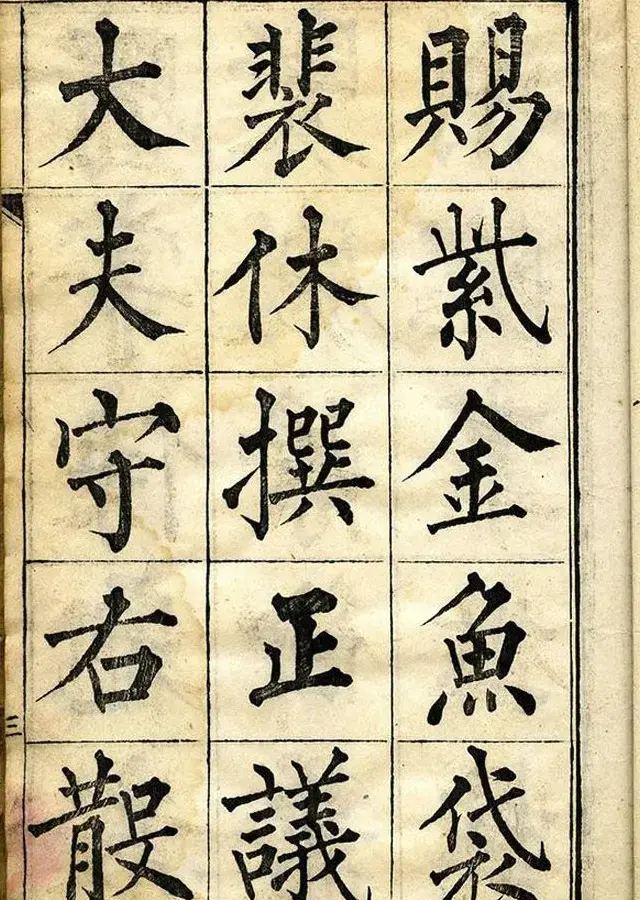 賜紫金魚袋
裴休撰正議
大夫守右散
三